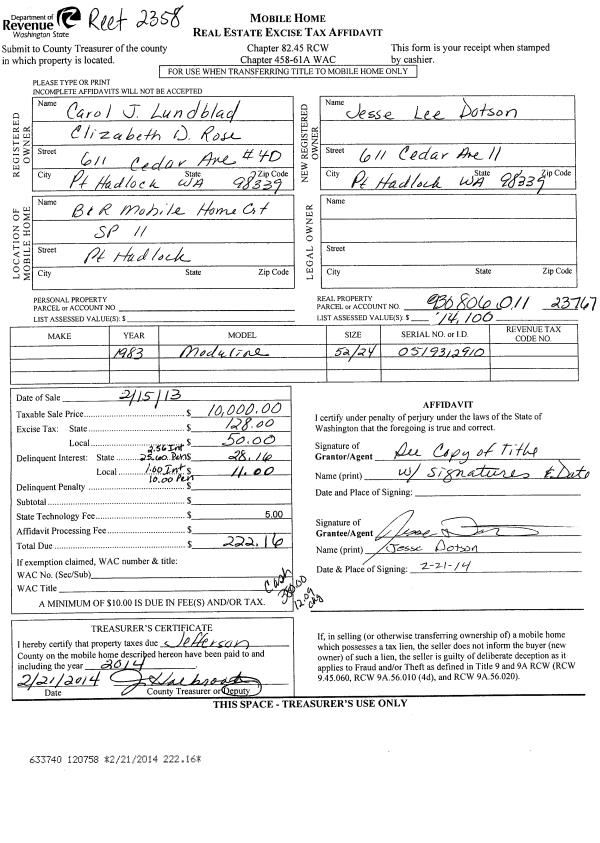 Department of
Revenue
Washington State
Reet 2358
MOBILE HOME
REAL ESTATE EXCISE TAX AFFIDAVIT
Submit to County Treasurer of the county
in which property is located.
Chapter 82.45 RCW
Chapter 458-61A WAC
This form is your receipt when stamped
by cashier.
FOR USE WHEN TRANSFERRING TITLE TO MOBILE HOME ONLY
PLEASE TYPE OR PRINT
INCOMPLETE AFFIDAVITS WILL NOT BE ACCEPTED
REGISTERED OWNER
Name Carol J. Lundblad
Elizabeth D. Rose
Street 611 Cedar Ave #4D
City State Zip Code
Pt Hadlock WA 98339
NEW REGISTERED OWNER
Name Jesse Lee Dotson
Street 611 Cedar Ave 11
City State Zip Code
Pt Hadlock WA 98339
LOCATION OF MOBILE HOME
Name B&R Mobile Home Crt
SP 11
Street Pt Hadlock
City State Zip Code
LEGAL OWNER
Name
Street
City State Zip Code
PERSONAL PROPERTY
PARCEL or ACCOUNT NO.
LIST ASSESSED VALUE(S): $
REAL PROPERTY
PARCEL or ACCOUNT NO. 806 011 23767
LIST ASSESSED VALUE(S): $ 14,100
MAKE YEAR MODEL SIZE SERIAL NO. or I.D. REVENUE TAX CODE NO.
1983 Moduline 52/24 0519312910
Date of Sale 2/15/13
Taxable Sale Price $ 10,000.00
Excise Tax: State $ 128.00
Local $ 50.00
2.56 Int
Delinquent Interest: State 25.60 Pens $ 28.16
Local 1.00 Int $ 11.00
10.00 Pen
Delinquent Penalty $
Subtotal $
State Technology Fee $ 5.00
Affidavit Processing Fee $
Total Due $ 222.16
If exemption claimed, WAC number & title:
WAC No. (Sec/Sub)
WAC Title
Cash
A MINIMUM OF $10.00 IS DUE IN FEE(S) AND/OR TAX.
AFFIDAVIT
I certify under penalty of perjury under the laws of the State of
Washington that the foregoing is true and correct.
Signature of
Grantor/Agent See Copy of Title
Name (print) w/ Signatures & Date
Date and Place of Signing:
Signature of
Grantee/Agent
Name (print) Jesse Dotson
Date & Place of Signing: 2-21-14
TREASURER'S CERTIFICATE
I hereby certify that property taxes due Jefferson
County on the mobile home described hereon have been paid to and
including the year 2014
2/21/2014
Date County Treasurer or Deputy
If, in selling (or otherwise transferring ownership of) a mobile home
which possesses a tax lien, the seller does not inform the buyer (new
owner) of such a lien, the seller is guilty of deliberate deception as it
applies to Fraud and/or Theft as defined in Title 9 and 9A RCW (RCW
9.45.060, RCW 9A.56.010 (4d), and RCW 9A.56.020).
THIS SPACE - TREASURER'S USE ONLY
633740 120758 *2/21/2014 222.16*